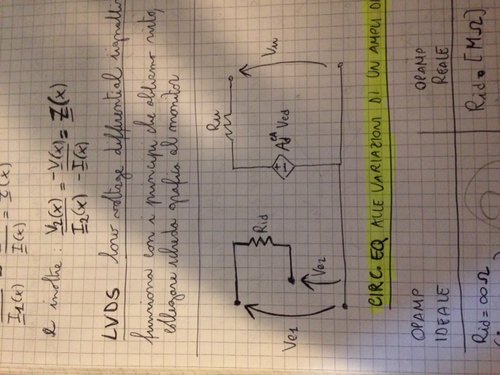 I₁(x) I(x)
e inoltre : V₂(x) = -V(x) = Z(x)
I₂(x) -I(x)
LVDS low voltage differential signalling
funziona con i principi che abbiamo visto,
collegare scheda grafica al monitor
Rid
Ve1
Ve2
Ru
Ad Ved
Vu
CIRC. EQ ALLE VARIAZIONI DI UN AMPLI
OPAMP IDEALE
OPAMP REALE
Rid = ∞Ω
Rid = [MΩ]